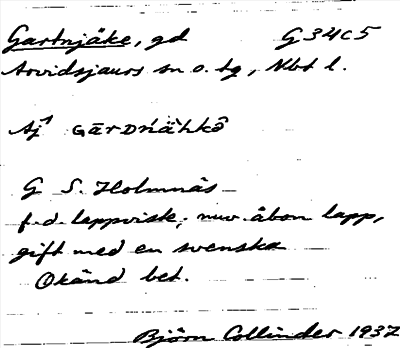 Gartnjåke, gd G34c5
Arvidsjaurs sn o. tg, Nbt l.
Aj¹
G S. Holmnäs
f.d. lappvisk; nuv. åbon lapp,
gift med en svenska
Okänd bet.
Björn Collinder 1937